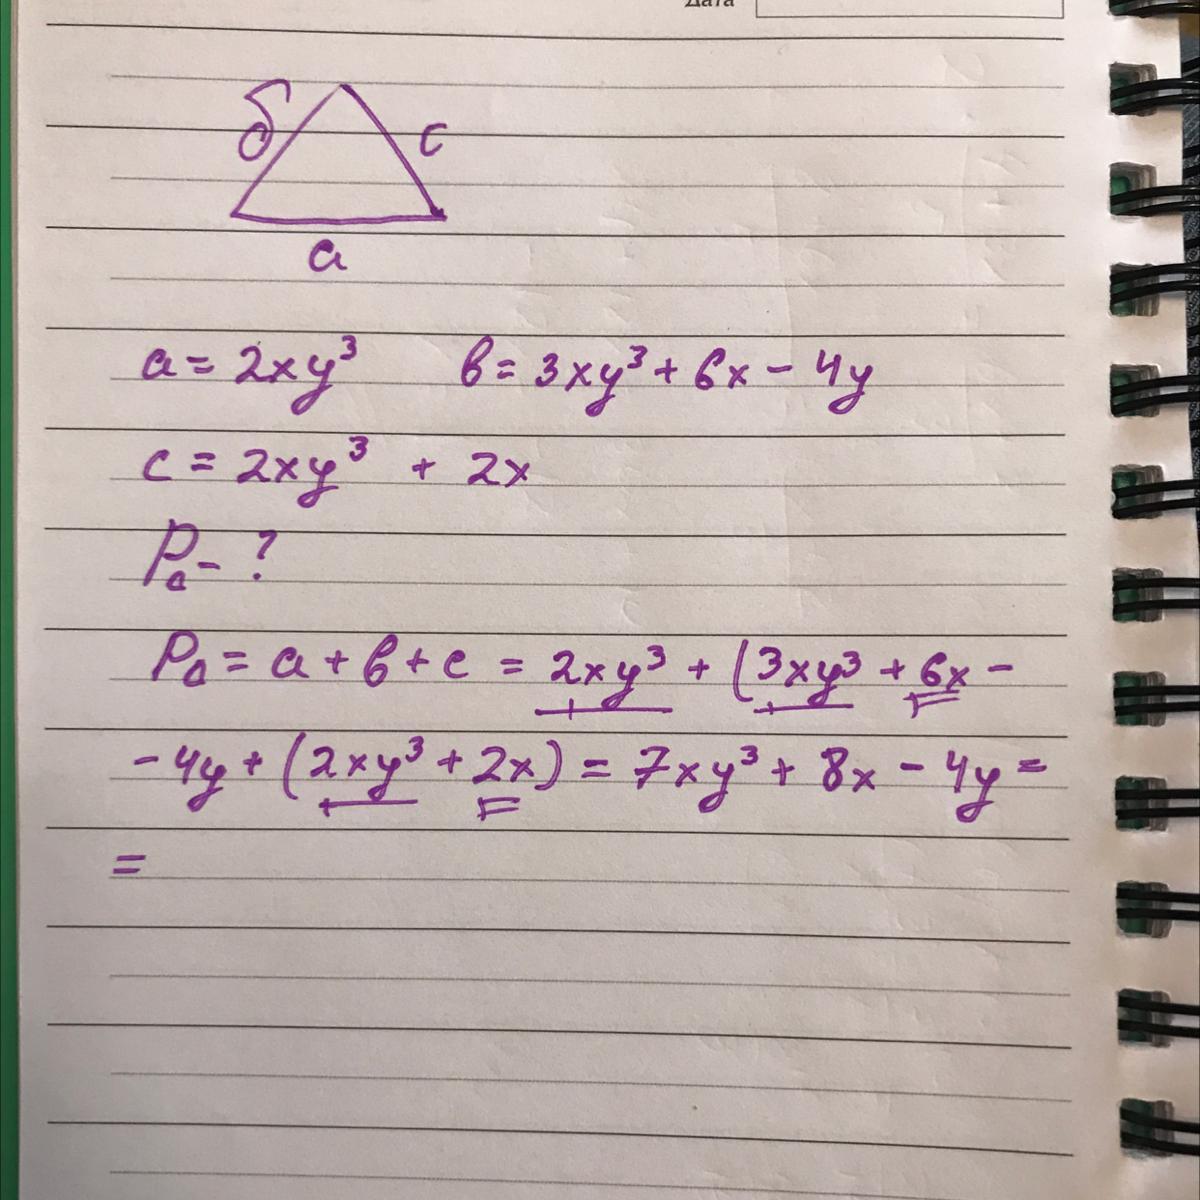 Дата
б
c
a
a = 2xy³ в = 3xy³ + 6x - 4y
c = 2xy³ + 2x
P△ - ?
P△ = a + в + c = 2xy³ + (3xy³ + 6x -
- 4y + (2xy³ + 2x) = 7xy³ + 8x - 4y =
=